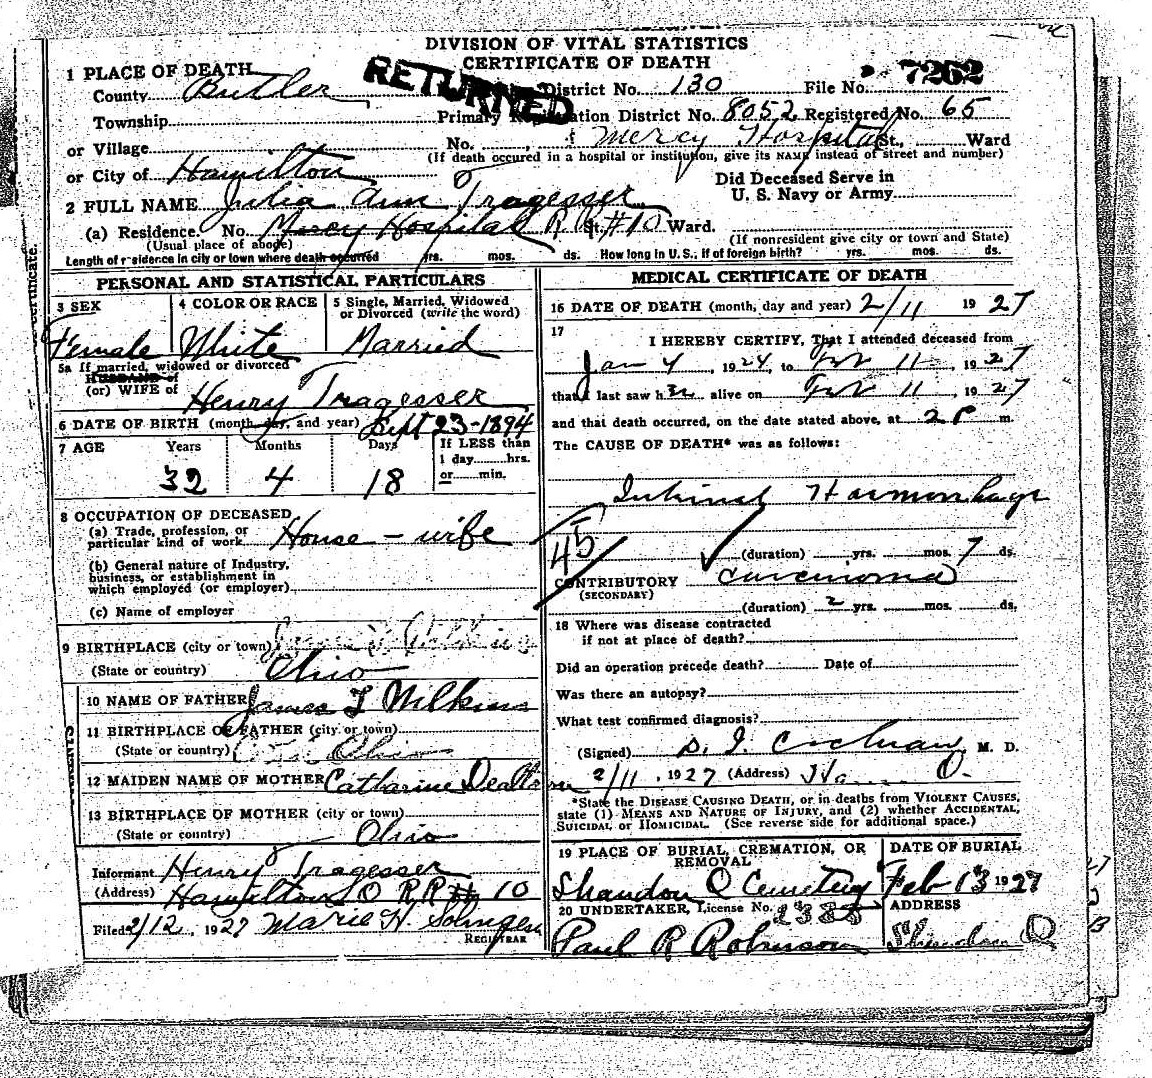 DIVISION OF VITAL STATISTICS
CERTIFICATE OF DEATH
RETURNED
1 PLACE OF DEATH
County Butler District No. 130 File No. 7262
Township Primary Registration District No. 8052 Registered No. 65
or Village No. Mercy Hospital St., Ward
(If death occured in a hospital or institution, give its NAME instead of street and number)
or City of Hamilton
Did Deceased Serve in
U. S. Navy or Army
2 FULL NAME Julia Ann Tragesser
(a) Residence. No. Mercy Hospital R R St., #10 Ward.
(Usual place of abode) (If nonresident give city or town and State)
Length of residence in city or town where death occurred yrs. mos. ds. How long in U. S., if of foreign birth? yrs. mos. ds.
PERSONAL AND STATISTICAL PARTICULARS
3 SEX 4 COLOR OR RACE 5 Single, Married, Widowed
or Divorced (write the word)
Female White Married
5a If married, widowed or divorced
HUSBAND of
(or) WIFE of Henry Tragesser
6 DATE OF BIRTH (month, day, and year) Sept 23-1894
7 AGE Years Months Days If LESS than
1 day hrs.
or min.
32 4 18
8 OCCUPATION OF DECEASED
(a) Trade, profession, or
particular kind of work House-wife
(b) General nature of Industry,
business, or establishment in
which employed (or employer)
(c) Name of employer
9 BIRTHPLACE (city or town)
(State or country) Ohio
10 NAME OF FATHER James T Wilkins
11 BIRTHPLACE OF FATHER (city or town)
(State or country) Ohio
12 MAIDEN NAME OF MOTHER Catharine
13 BIRTHPLACE OF MOTHER (city or town)
(State or country) Ohio
Informant Henry Tragesser
(Address) Hamilton O R R # 10
Filed 2/12, 1927 Marie H.
REGISTRAR
MEDICAL CERTIFICATE OF DEATH
16 DATE OF DEATH (month, day and year) 2/11 1927
17
I HEREBY CERTIFY, That I attended deceased from
Jan 4, 1924, to Feb 11, 1927
that I last saw h alive on Feb 11, 1927
and that death occurred, on the date stated above, at 2 P m.
The CAUSE OF DEATH* was as follows:
Intestinal Haemorrhage
45
(duration) yrs. mos. 7 ds.
CONTRIBUTORY carcinoma
(SECONDARY)
(duration) 2 yrs. mos. ds.
18 Where was disease contracted
if not at place of death?
Did an operation precede death? Date of
Was there an autopsy?
What test confirmed diagnosis?
(Signed) Cochran, M. D.
2/11, 1927 (Address) O.
*State the DISEASE CAUSING DEATH, or in deaths from VIOLENT CAUSES,
state (1) MEANS AND NATURE OF INJURY, and (2) whether ACCIDENTAL,
SUICIDAL, or HOMICIDAL. (See reverse side for additional space.)
19 PLACE OF BURIAL, CREMATION, OR
REMOVAL
Shandon O Cemetery
DATE OF BURIAL
Feb 13 1927
20 UNDERTAKER, License No. 2385
Paul R Robinson
ADDRESS
Shandon O